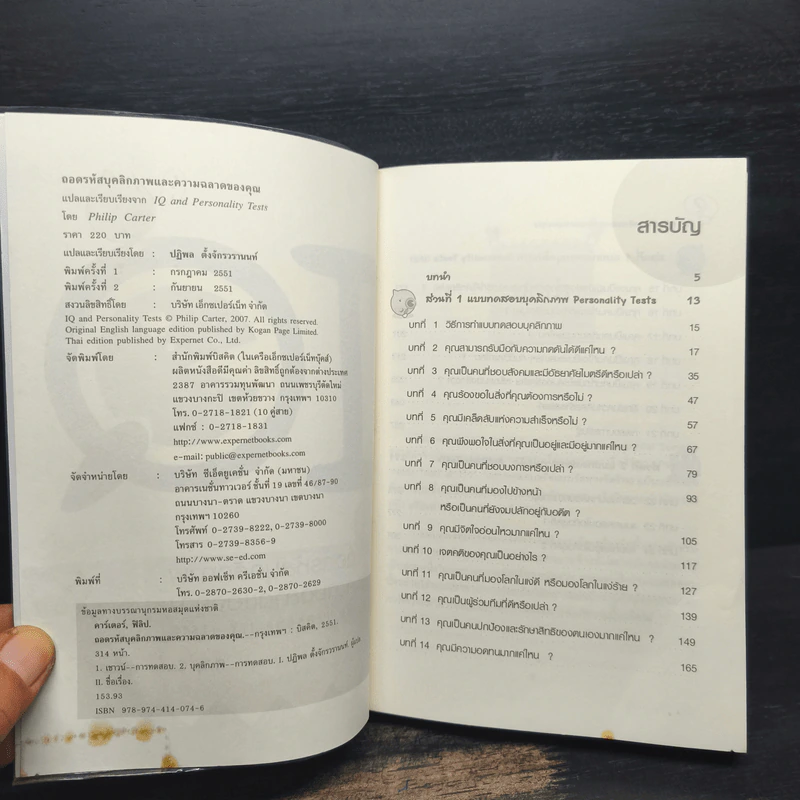 ถอดรหัสบุคลิกภาพและความฉลาดของคุณ
แปลและเรียบเรียงจาก IQ and Personality Tests
โดย Philip Carter
ราคา 220 บาท
แปลและเรียบเรียงโดย : ปฏิพล ตั้งจักรวรานนท์
พิมพ์ครั้งที่ 1 : กรกฎาคม 2551
พิมพ์ครั้งที่ 2 : กันยายน 2551
สงวนลิขสิทธิ์โดย : บริษัท เอ็กซเปอร์เน็ท จำกัด
IQ and Personality Tests © Philip Carter, 2007. All rights reserved.
Original English language edition published by Kogan Page Limited.
Thai edition published by Expernet Co., Ltd.
จัดพิมพ์โดย : สำนักพิมพ์บิสคิต (ในเครือเอ็กซเปอร์เน็ทบุ๊คส์)
ผลิตหนังสือดีมีคุณค่า ลิขสิทธิ์ถูกต้องจากต่างประเทศ
2387 อาคารรวมทุนพัฒนา ถนนเพชรบุรีตัดใหม่
แขวงบางกะปิ เขตห้วยขวาง กรุงเทพฯ 10310
โทร. 0-2718-1821 (10 คู่สาย)
แฟกซ์ : 0-2718-1831
http://www.expernetbooks.com
e-mail: public@expernetbooks.com
จัดจำหน่ายโดย : บริษัท ซีเอ็ดยูเคชั่น จำกัด (มหาชน)
อาคารเนชั่นทาวเวอร์ ชั้นที่ 19 เลขที่ 46/87-90
ถนนบางนา-ตราด แขวงบางนา เขตบางนา
กรุงเทพฯ 10260
โทรศัพท์ 0-2739-8222, 0-2739-8000
โทรสาร 0-2739-8356-9
http://www.se-ed.com
พิมพ์ที่ : บริษัท ออฟเซ็ท ครีเอชั่น จำกัด
โทร. 0-2870-2630-2, 0-2870-2629
ข้อมูลทางบรรณานุกรมหอสมุดแห่งชาติ
คาร์เตอร์, ฟิลิป.
ถอดรหัสบุคลิกภาพและความฉลาดของคุณ.--กรุงเทพฯ : บิสคิต, 2551.
314 หน้า.
1. เชาวน์--การทดสอบ. 2. บุคลิกภาพ--การทดสอบ. I. ปฏิพล ตั้งจักรวรานนท์
II. ชื่อเรื่อง.
153.93
ISBN 978-974-414-074-6
สารบัญ
บทนำ 5
ส่วนที่ 1 แบบทดสอบบุคลิกภาพ Personality Tests 13
บทที่ 1 วิธีการทำแบบทดสอบบุคลิกภาพ 15
บทที่ 2 คุณสามารถรับมือกับความกดดันได้ดีแค่ไหน ? 17
บทที่ 3 คุณเป็นคนที่ชอบสังคมและมีอัธยาศัยไมตรีดีหรือเปล่า ? 35
บทที่ 4 คุณร้องขอในสิ่งที่คุณต้องการหรือไม่ ? 47
บทที่ 5 คุณมีเคล็ดลับแห่งความสำเร็จหรือไม่ ? 57
บทที่ 6 คุณพึงพอใจในสิ่งที่คุณเป็นอยู่และมีอยู่มากแค่ไหน ? 67
บทที่ 7 คุณเป็นคนที่ชอบบงการหรือเปล่า ? 79
บทที่ 8 คุณเป็นคนที่มองไปข้างหน้า
หรือเป็นคนที่ยังจมปลักอยู่กับอดีต ? 93
บทที่ 9 คุณมีจิตใจอ่อนไหวมากแค่ไหน ? 105
บทที่ 10 เจตคติของคุณเป็นอย่างไร ? 117
บทที่ 11 คุณเป็นคนที่มองโลกในแง่ดี หรือมองโลกในแง่ร้าย ? 127
บทที่ 12 คุณเป็นผู้ร่วมทีมที่ดีหรือเปล่า ? 139
บทที่ 13 คุณเป็นคนปกป้องและรักษาสิทธิของตนเองมากแค่ไหน ? 149
บทที่ 14 คุณมีความอดทนมากแค่ไหน ? 165